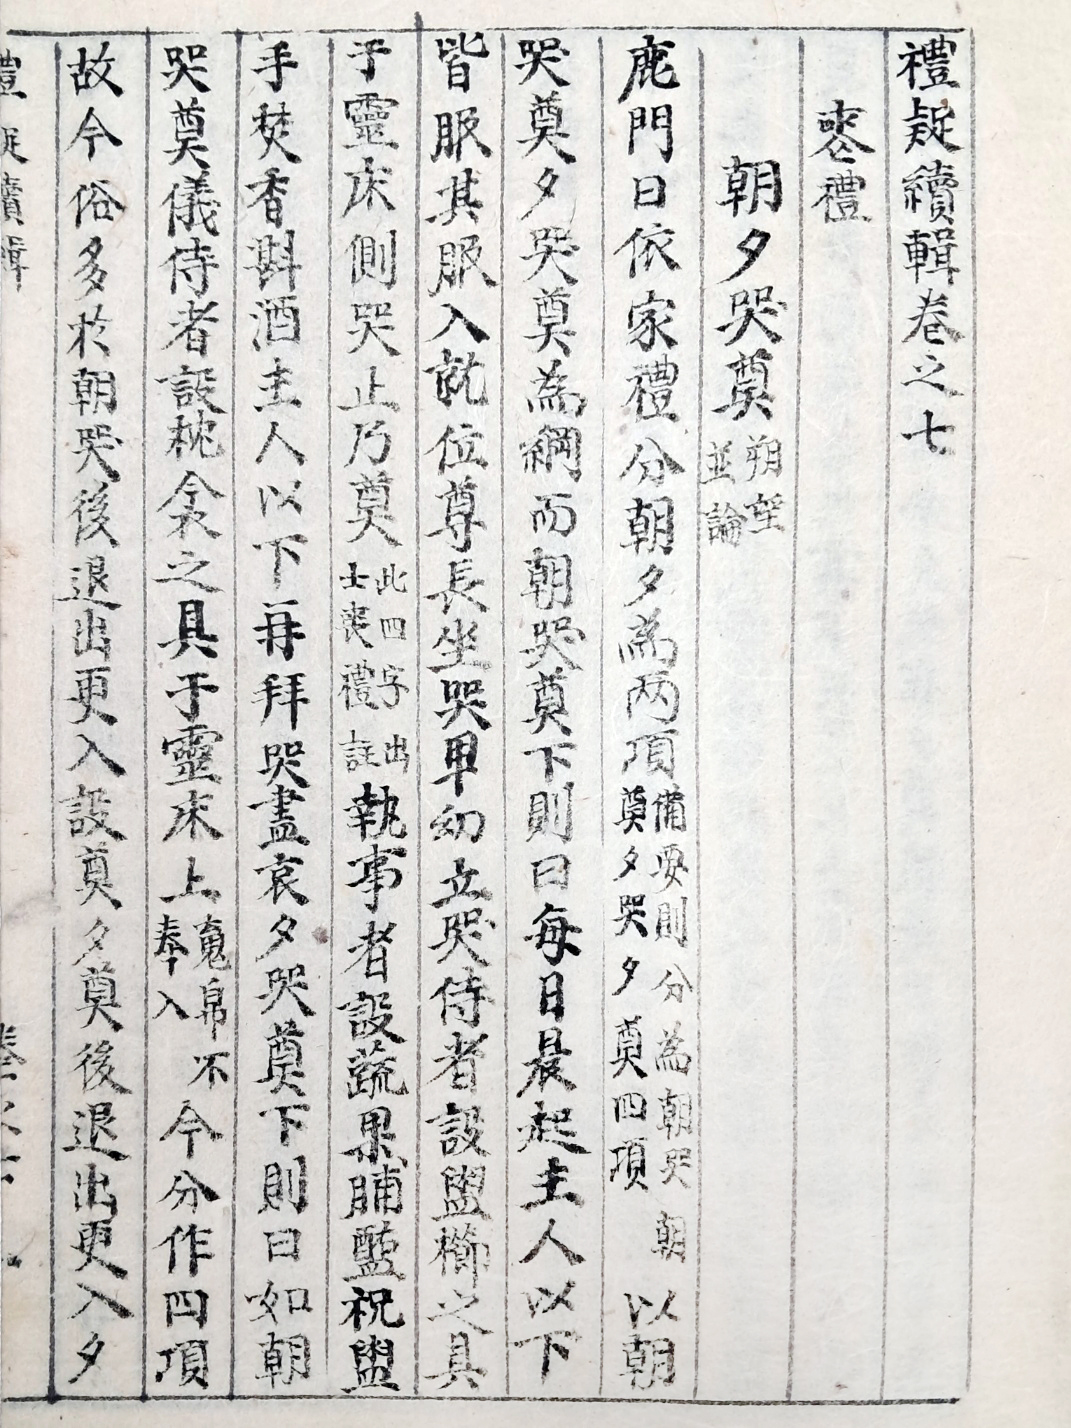 禮疑續輯卷之七
喪禮
朝夕哭奠 朔望並論
鹿門曰依家禮分朝夕為兩項 備要則分為朝哭朝奠夕哭夕奠四項 以朝
哭奠夕哭奠為綱而朝哭奠下則曰每日晨起主人以下
皆服其服入就位尊長坐哭卑幼立哭侍者設盥櫛之具
于靈床側哭止乃奠 此四字出士喪禮註 執事者設蔬果脯醢祝盥
手焚香斟酒主人以下再拜哭盡哀夕哭奠下則曰如朝
哭奠儀侍者設枕衾之具于靈床上 䰟帛不奉入 今分作四項
故今俗多於朝哭後退出更入設奠夕奠後退出更入夕
禮疑續輯